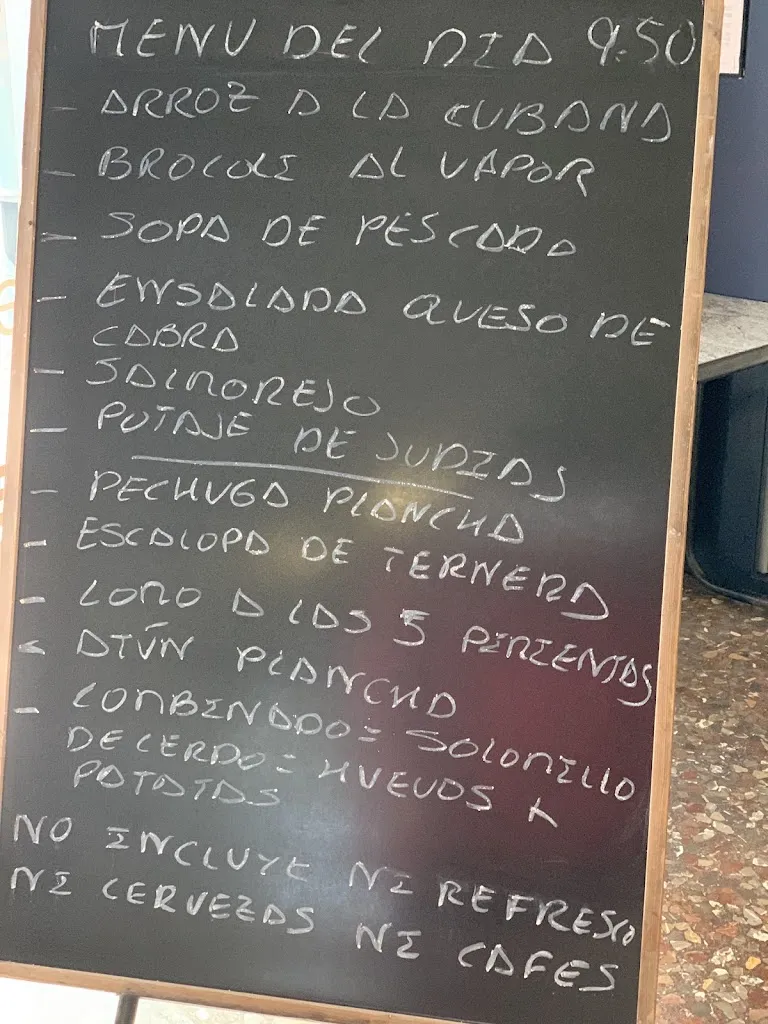 MENU DEL DIA 9.50
- ARROZ A LA CUBANA
- BROCOLI AL VAPOR
- SOPA DE PESCADO
- ENSALADA QUESO DE
CABRA
- SALMOREJO
- POTAJE DE JUDIAS
- PECHUGA PLANCHA
- ESCALOPA DE TERNERA
- LOMO A LAS 5 PIMIENTAS
- ATÚN PLANCHA
- COMBINADO = SOLOMILLO
DE CERDO = HUEVOS +
PATATAS
NO INCLUYE NI REFRESCO
NI CERVEZAS NI CAFES